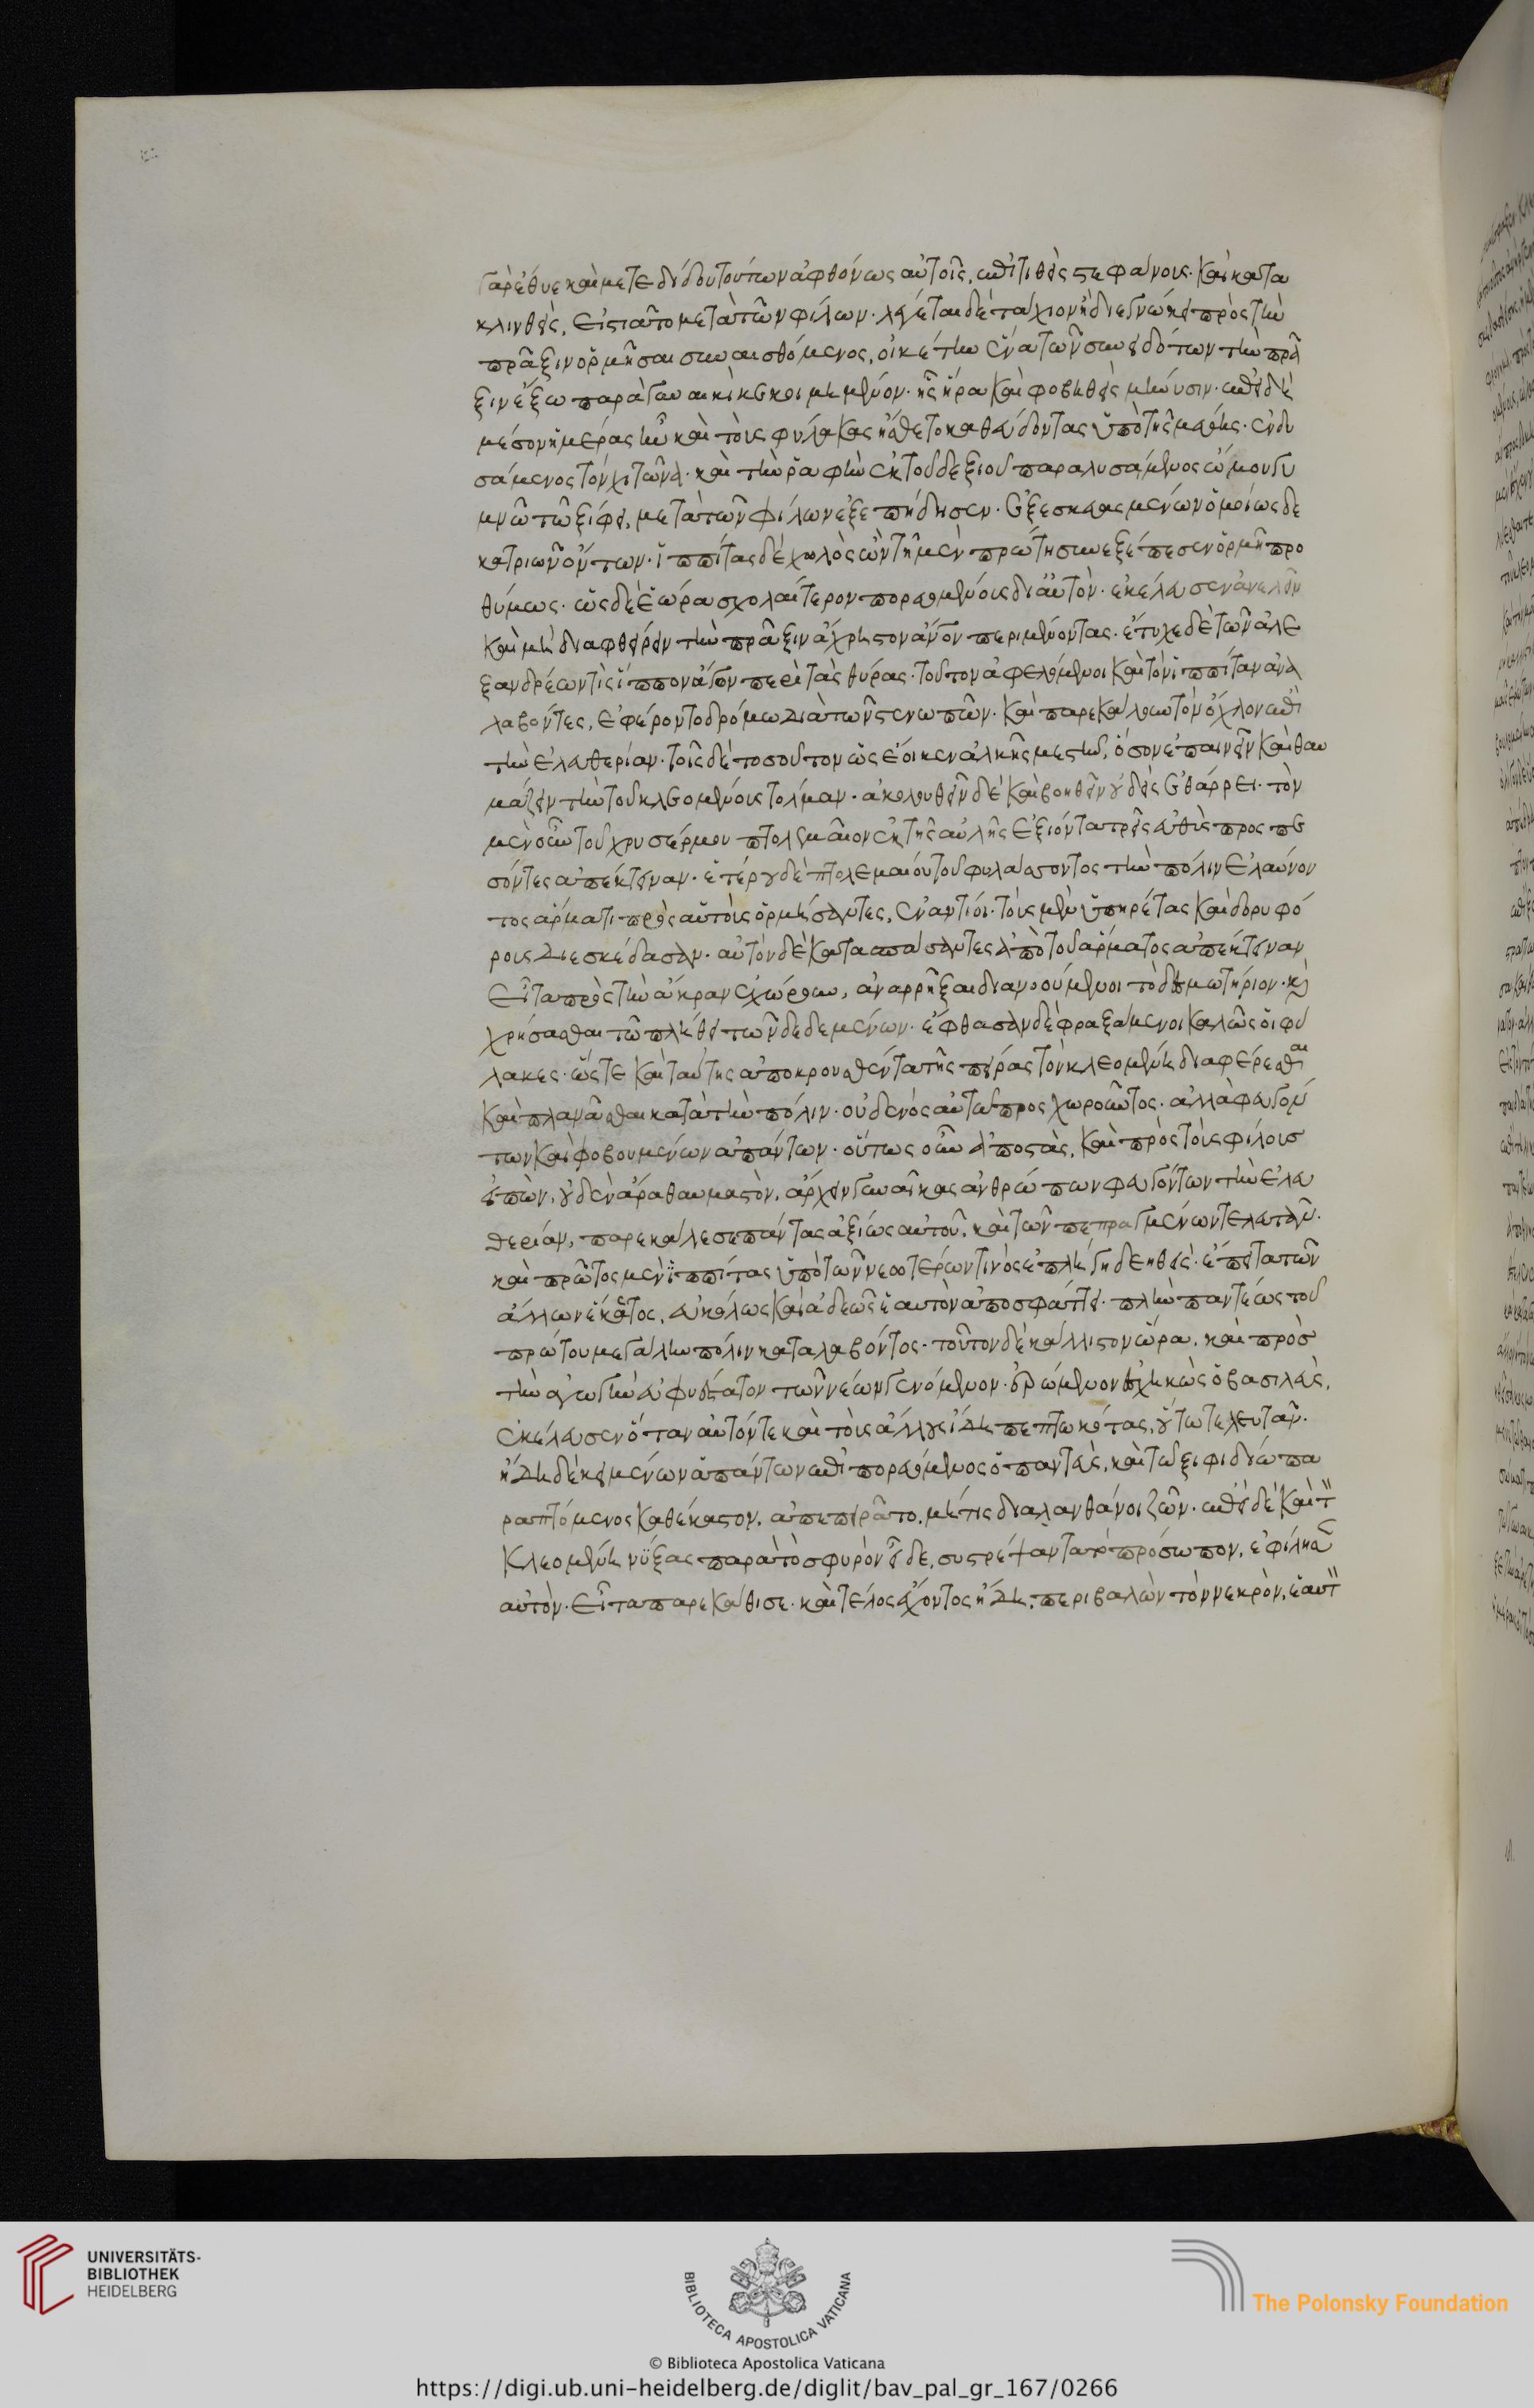 γὰρ ἔθυε καὶ μετεδίδου τούτων ἀφθόνως αὐτοῖς, ἐπιτιθεὶς στεφάνους· καὶ κατα
κλιθεὶς, εἱστιᾶτο μετὰ τῶν φίλων· λέγεται δὲ τάχιον ἢ διεγνώκει πρὸς τὴν
πρᾶξιν ὁρμῆσαι συναισθόμενος, οἰκέτην ἕνα τῶν συνειδότων τὴν πρᾶ
ξιν ἔξω παρὰ γυναικὶ κεκοιμημένον· ἧς ἤρα καὶ φοβηθεὶς μήνυσιν· ἐπειδὴ
μέσον ἡμέρας ἦν καὶ τοὺς φύλακας ᾔσθετο καθεύδοντας ὑπὸ τῆς μέθης· ἐνδυ
σάμενος τὸν χιτῶνα· καὶ τὴν ῥαφὴν ἐκ τοῦ δεξιοῦ παραλυσάμενος ὤμου γυ
μνῶ τῶ ξίφει, μετὰ τῶν φίλων ἐξεπήδησεν· ἐξεσκευασμένων ὁμοίως δε
κατριῶν ὄντων· ἱππίτας δὲ χωλὸς ὢν τῆ μὲν πρώτη συνεξέπεσεν ὁρμῆ προ
θύμως· ὡς δὲ ἑώρα σχολαίτερον πορευομένους δι' αὐτὸν· ἐκέλευσεν ἀνελεῖν
καὶ μὴ διαφθείρειν τὴν πρᾶξιν ἄχρηστον ἄνθρωπον περιμένοντας· ἔτυχε δὲ τῶν ἀλε
ξανδρέων τὶς ἵππον ἄγων περὶ τὰς θύρας· τοῦτον ἀφελόμενοι καὶ τὸν ἱππίταν ἀνα
λαβόντες, ἐφέροντο δρόμω διὰ τῶν στενωπῶν· καὶ παρεκάλουν τὸν ὄχλον ἐπὶ
τὴν ἐλευθερίαν· τοῖς δὲ τοσοῦτον ὡς ἔοικεν ἀλκῆς μετῆν, ὅσον ἐπαινεῖν καὶ θαυ
μάζειν τὴν τοῦ κλεομένους τόλμαν· ἀκολουθεῖν δὲ καὶ βοηθεῖν οὐδεὶς ἐθάρρει· τὸν
μὲν οὖν τοῦ χρυσέρμου πτολεμαῖον ἐκ τῆς αὐλῆς ἐξιόντα τρεῖς εὐθὺς προσπε
σόντες ἀπέκτειναν· ἑτέρου δὲ πτολεμαίου τοῦ φυλάσσοντος τὴν πόλιν ἐλαύνον
τος ἅρματι πρὸς αὐτοὺς ὁρμήσαντες, ἐναντίοι· τοὺς μὲν ὑπηρέτας καὶ δορυφό
ρους διεσκέδασαν· αὐτὸν δὲ κατασπάσαντες ἀπὸ τοῦ ἅρματος ἀπέκτειναν
εἶτα πρὸς τὴν ἄκραν ἐχώρουν, ἀναρρῆξαι διανοούμενοι τὸ δεσμωτήριον· καὶ
χρήσασθαι τῶ πλήθει τῶν δεδεμένων· ἔφθασαν δὲ φραξάμενοι καλῶς οἱ φύ
λακες· ὥστε καὶ ταύτης ἀποκρουσθέντα τῆς πείρας τὸν κλεομένη διαφέρεσθαι
καὶ πλανᾶσθαι κατὰ τὴν πόλιν· οὐδενὸς αὐτῶ προσχωροῦντος· ἀλλὰ φευγόν
των καὶ φοβουμένων ἁπάντων· οὕτως οὖν ἀποστὰς, καὶ πρὸς τοὺς φίλους
εἰπὼν, οὐδὲν ἄρα θαυμαστὸν, ἄρχειν γυναῖκας ἀνθρώπων φευγόντων τὴν ἐλευ
θερίαν, παρεκάλεσε πάντας ἀξίως αὐτοῦ, καὶ τῶν πεπραγμένων τελευτᾶν·
καὶ πρῶτος μὲν ἱππίτας ὑπὸ τῶν νεωτέρων τινὸς ἐπλήγη δεηθεὶς· ἔπειτα τῶν
ἄλλων ἕκαστος, εὐκόλως καὶ ἀδεῶς ἑαυτὸν ἀποσφάττει· πλὴν παντέως τοῦ
πρώτου μεγάλην πόλιν καταλαβόντος· τοῦτον δὲ κάλλιστον ὥρα, καὶ πρὸς
τὴν ἀγωγὴν εὐφυέστατον τῶν νέων γενόμενον· ἐρώμενον ἐσχηκὼς ὁ βασιλεὺς,
ἐκέλευσεν ὅταν αὐτόν τε καὶ τοὺς ἄλλους ἴδη πεπτωκότας, οὕτω τελευτᾶν·
ἤδη δὲ κειμένων ἁπάντων ἐπιπορευόμενος ὁ παντεὺς, καὶ τῶ ξιφιδίω πα
ραπτόμενος καθέκαστον, ἀπεπειρᾶτο, μή τις διαλανθάνοι ζῶν· ἐπεὶ δὲ καὶ τὸν
κλεομένη νύξας παρὰ τὸ σφυρὸν εἶδε, συστρέψαντα τὸ πρόσωπον, ἐφίλησεν
αὐτὸν· εἶτα παρεκάθισε· καὶ τέλος ἔχοντος ἤδη, περιβαλὼν τὸν νεκρὸν, ἑαυτὸν
UNIVERSITÄTS-
BIBLIOTHEK
HEIDELBERG
BIBLIOTECA APOSTOLICA VATICANA
The Polonsky Foundation
© Biblioteca Apostolica Vaticana
https://digi.ub.uni-heidelberg.de/diglit/bav_pal_gr_167/0266